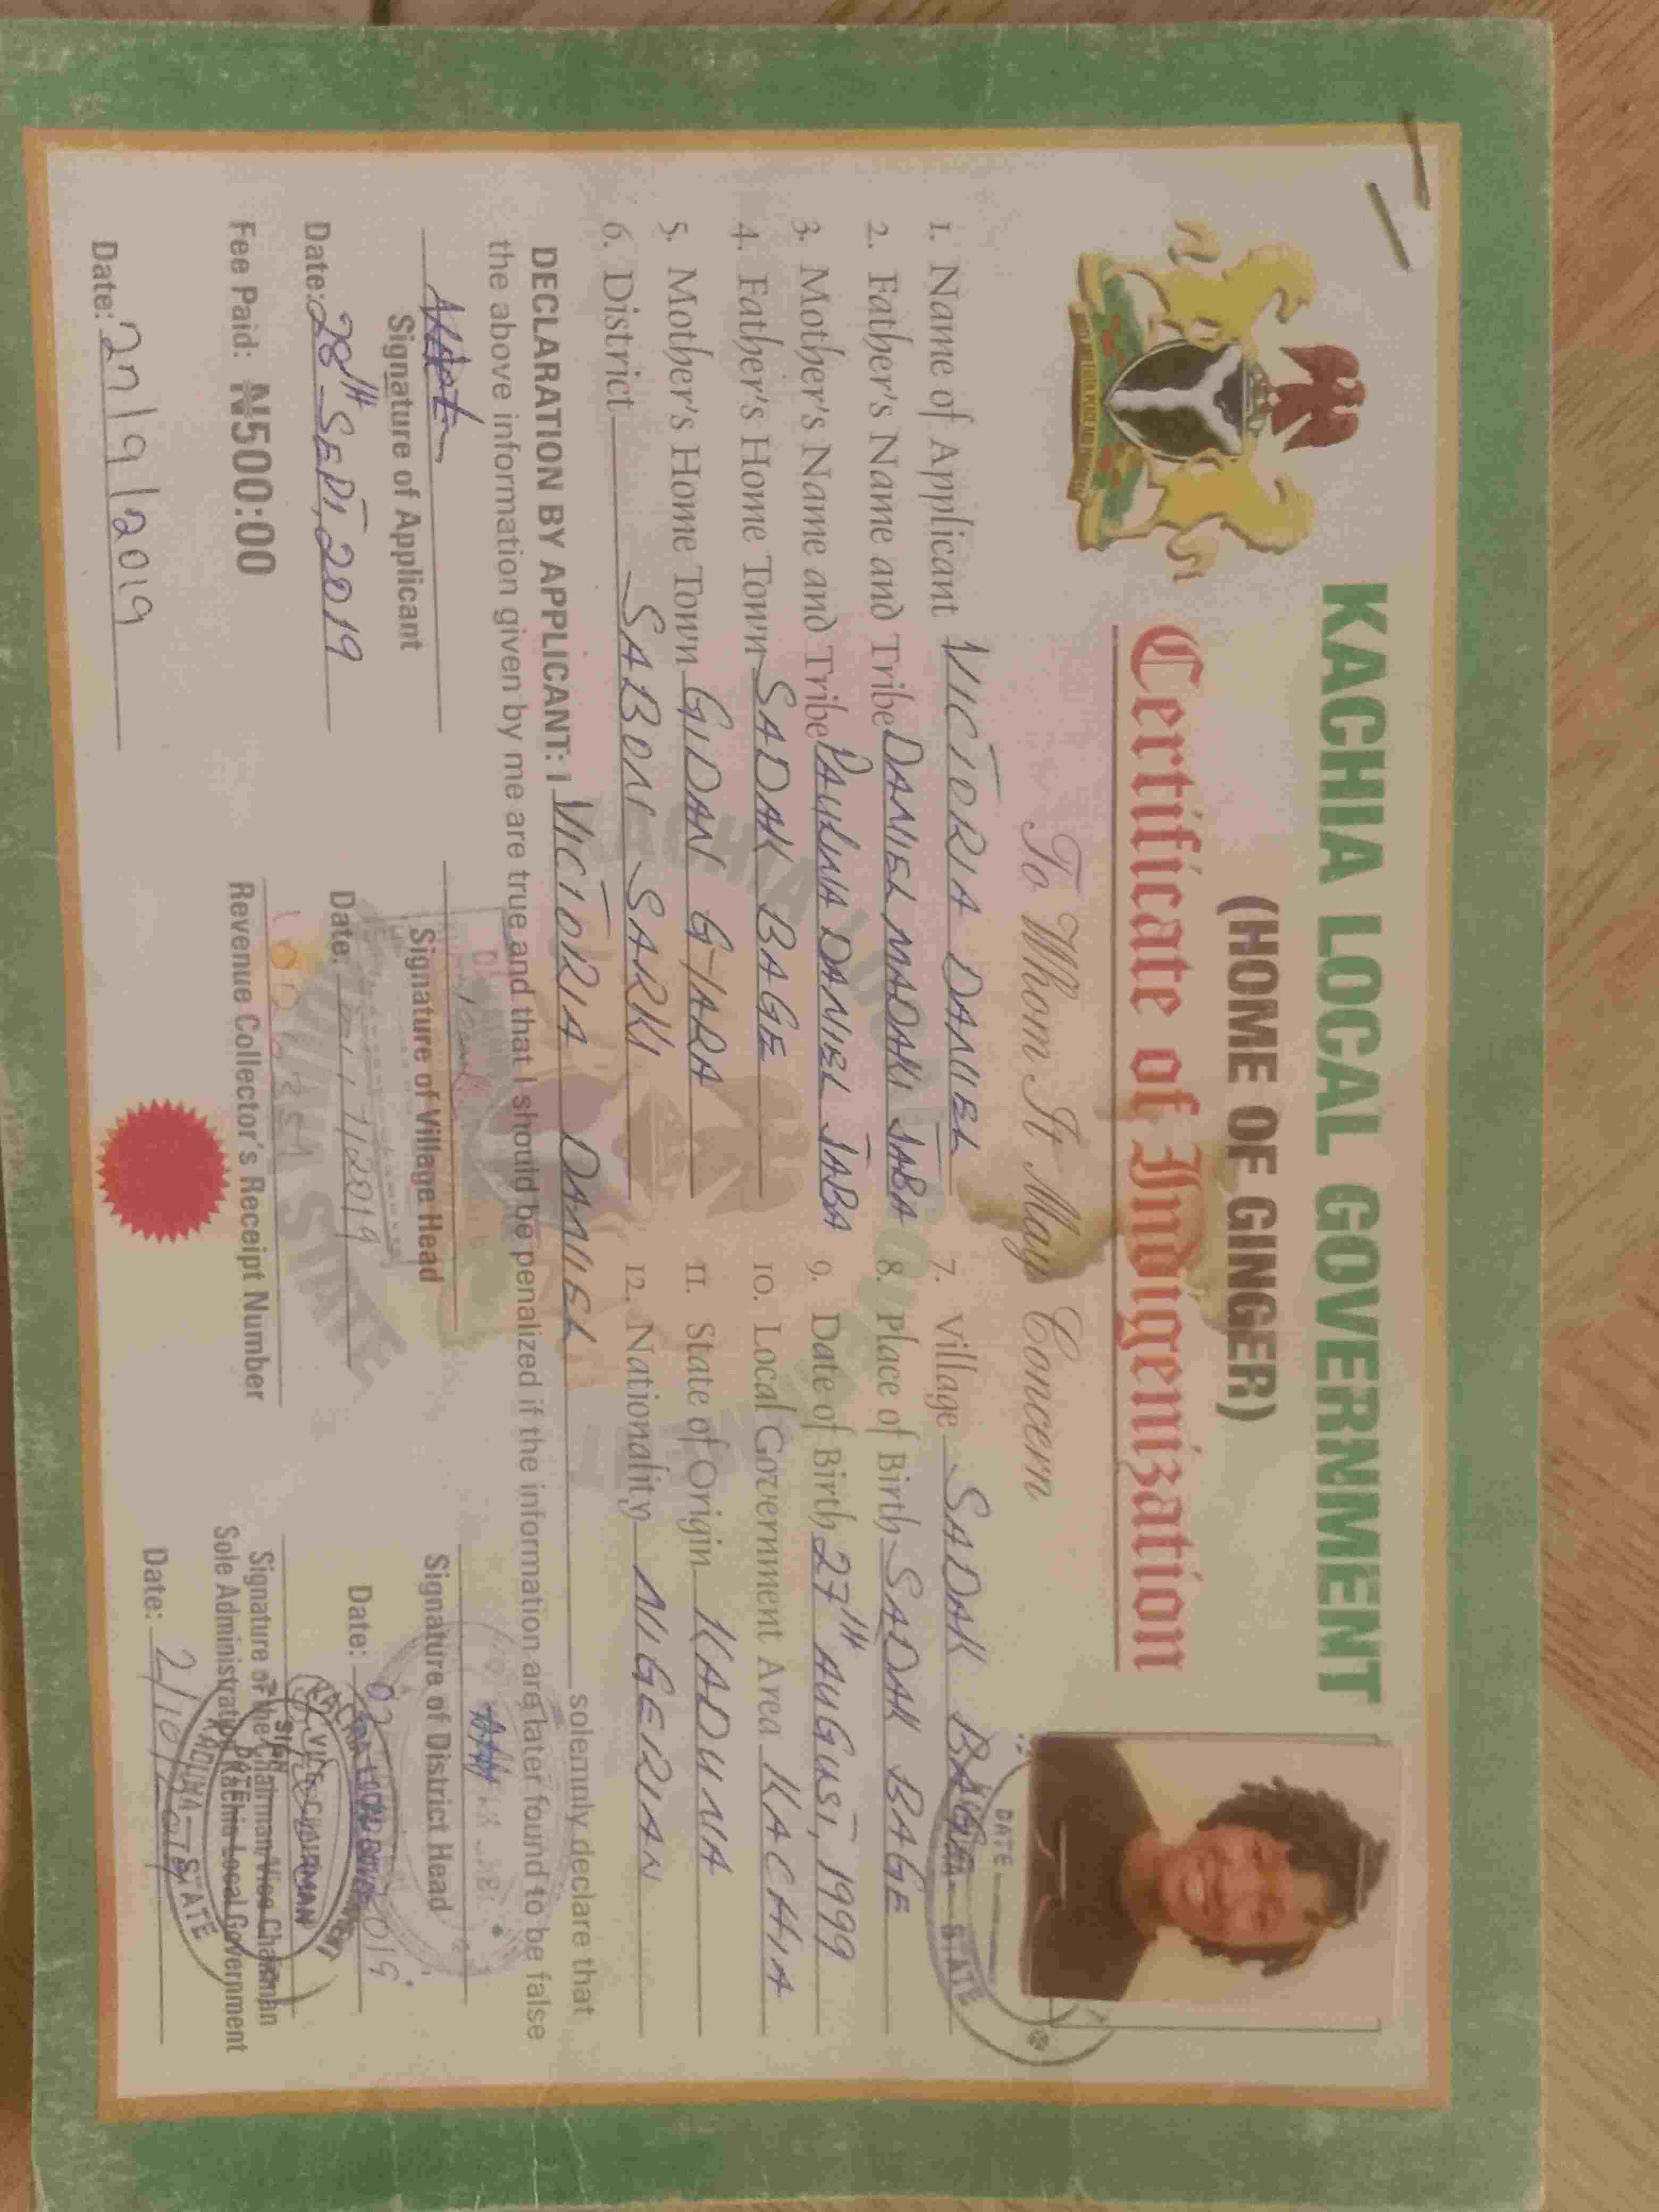 KACHIA LOCAL GOVERNMENT
(HOME OF GINGER)
Certificate of Indigenization
To Whom It May Concern
1. Name of Applicant VICTORIA DANIEL
2. Father's Name and Tribe DANIEL MADAKI JABA
3. Mother's Name and Tribe PAULINA DANIEL JABA
4. Father's Home Town SADAK BAGE
5. Mother's Home Town GIDAN GIARA
6. District SABON SARKI
7. Village SADAK BAGE
8. Place of Birth SADAK BAGE
9. Date of Birth 27TH AUGUST, 1999
10. Local Government Area KACHIA
11. State of Origin KADUNA
12. Nationality NIGERIAN
DATE
STATE
DECLARATION BY APPLICANT: I VICTORIA DANIEL solemnly declare that
the above information given by me are true and that I should be penalized if the information are later found to be false
Signature of Applicant
Date: 28TH SEPT, 2019
Signature of Village Head
Date: 2019
Signature of District Head
Date: 02 2019
Fee Paid: ₦500:00
Revenue Collector's Receipt Number
Signature of the Chairman/Vice Chairman
Sole Administrator Kachia Local Government
VICE CHAIRMAN
SIGN
DATE
KADUNA STATE
Date: 27/9/2019
Date: 2/10/2019